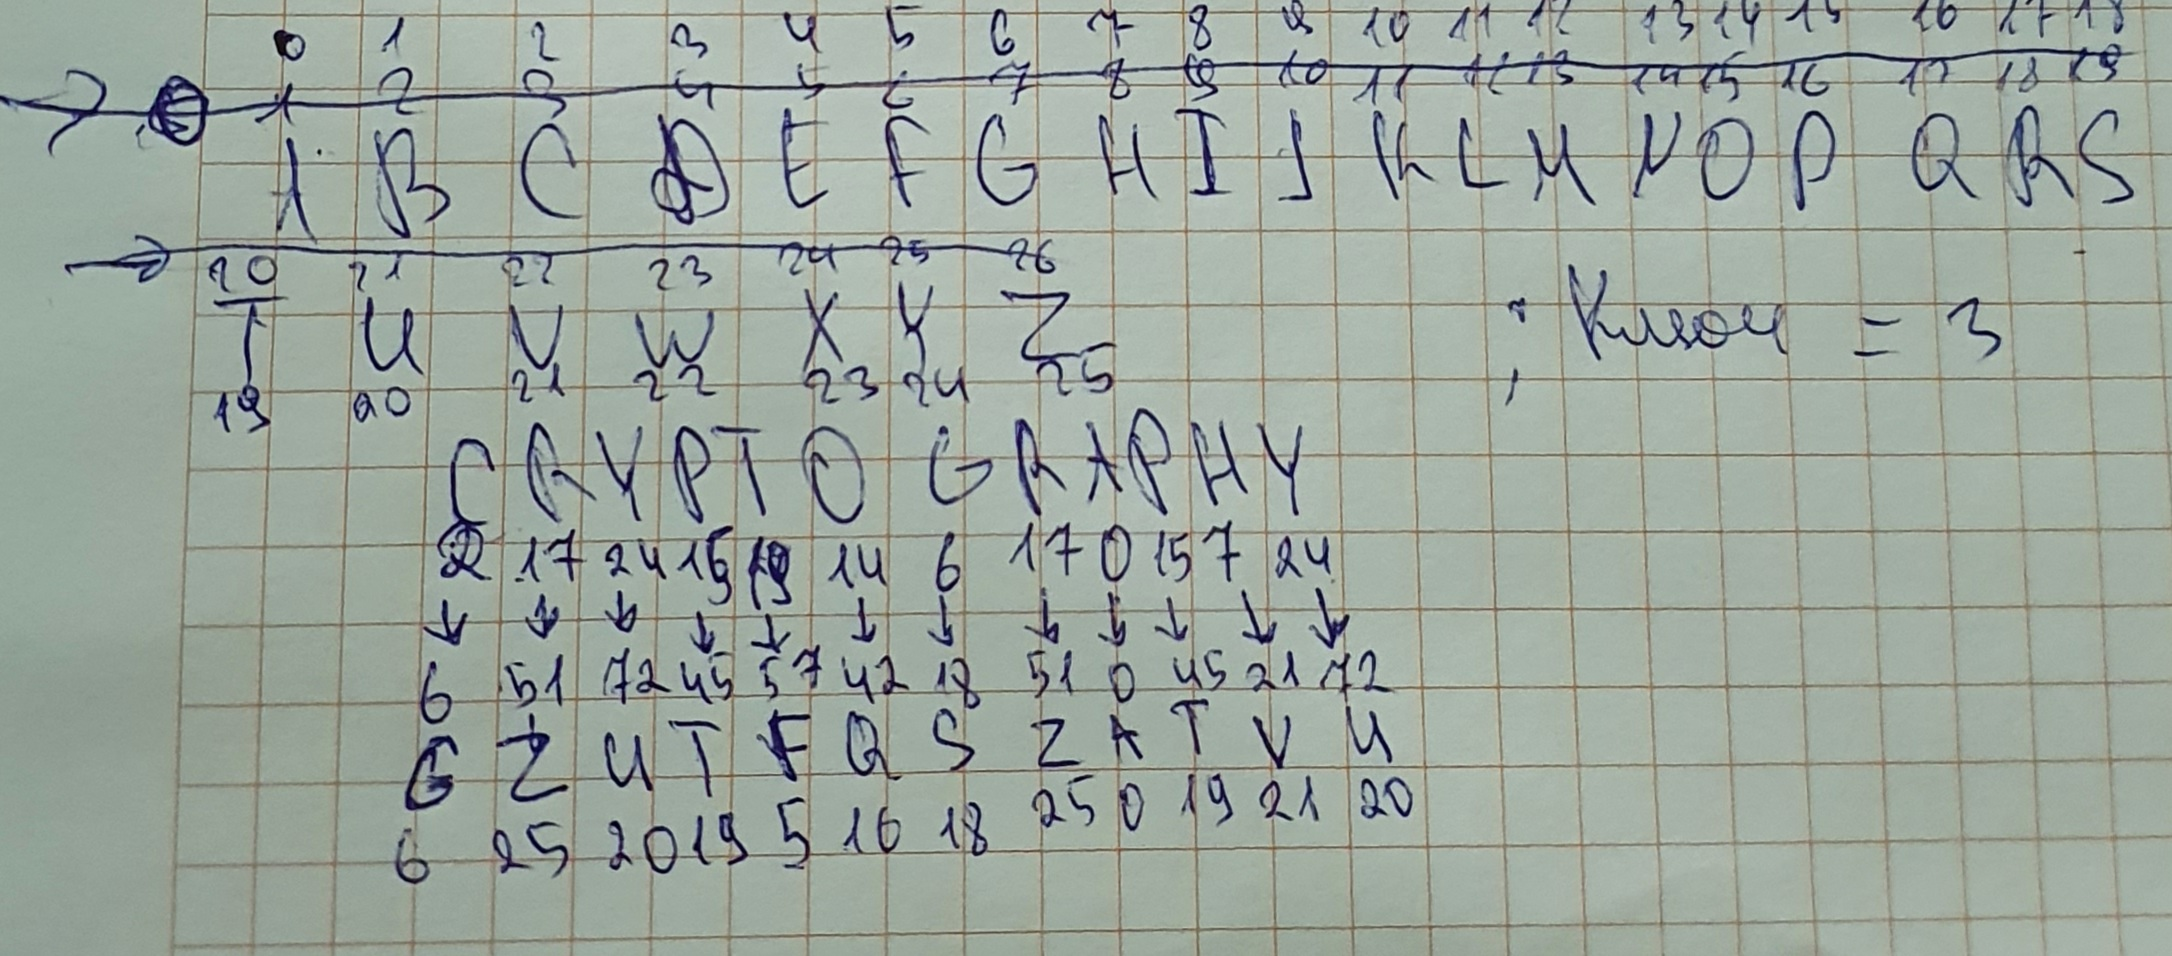 0 1 2 3 4 5 6 7 8 9 10 11 12 13 14 15 16 17 18
1 2 3 4 5 6 7 8 9 10 11 12 13 14 15 16 17 18 19
A B C D E F G H I J K L M N O P Q R S
20 21 22 23 24 25 26
T U V W X Y Z ; Ключ = 3
19 20 21 22 23 24 25
C R Y P T O G R A P H Y
2 17 24 15 19 14 6 17 0 15 7 24
↓ ↓ ↓ ↓ ↓ ↓ ↓ ↓ ↓ ↓ ↓ ↓
6 51 72 45 57 42 18 51 0 45 21 72
G Z U T F Q S Z A T V U
6 25 20 19 5 16 18 25 0 19 21 20